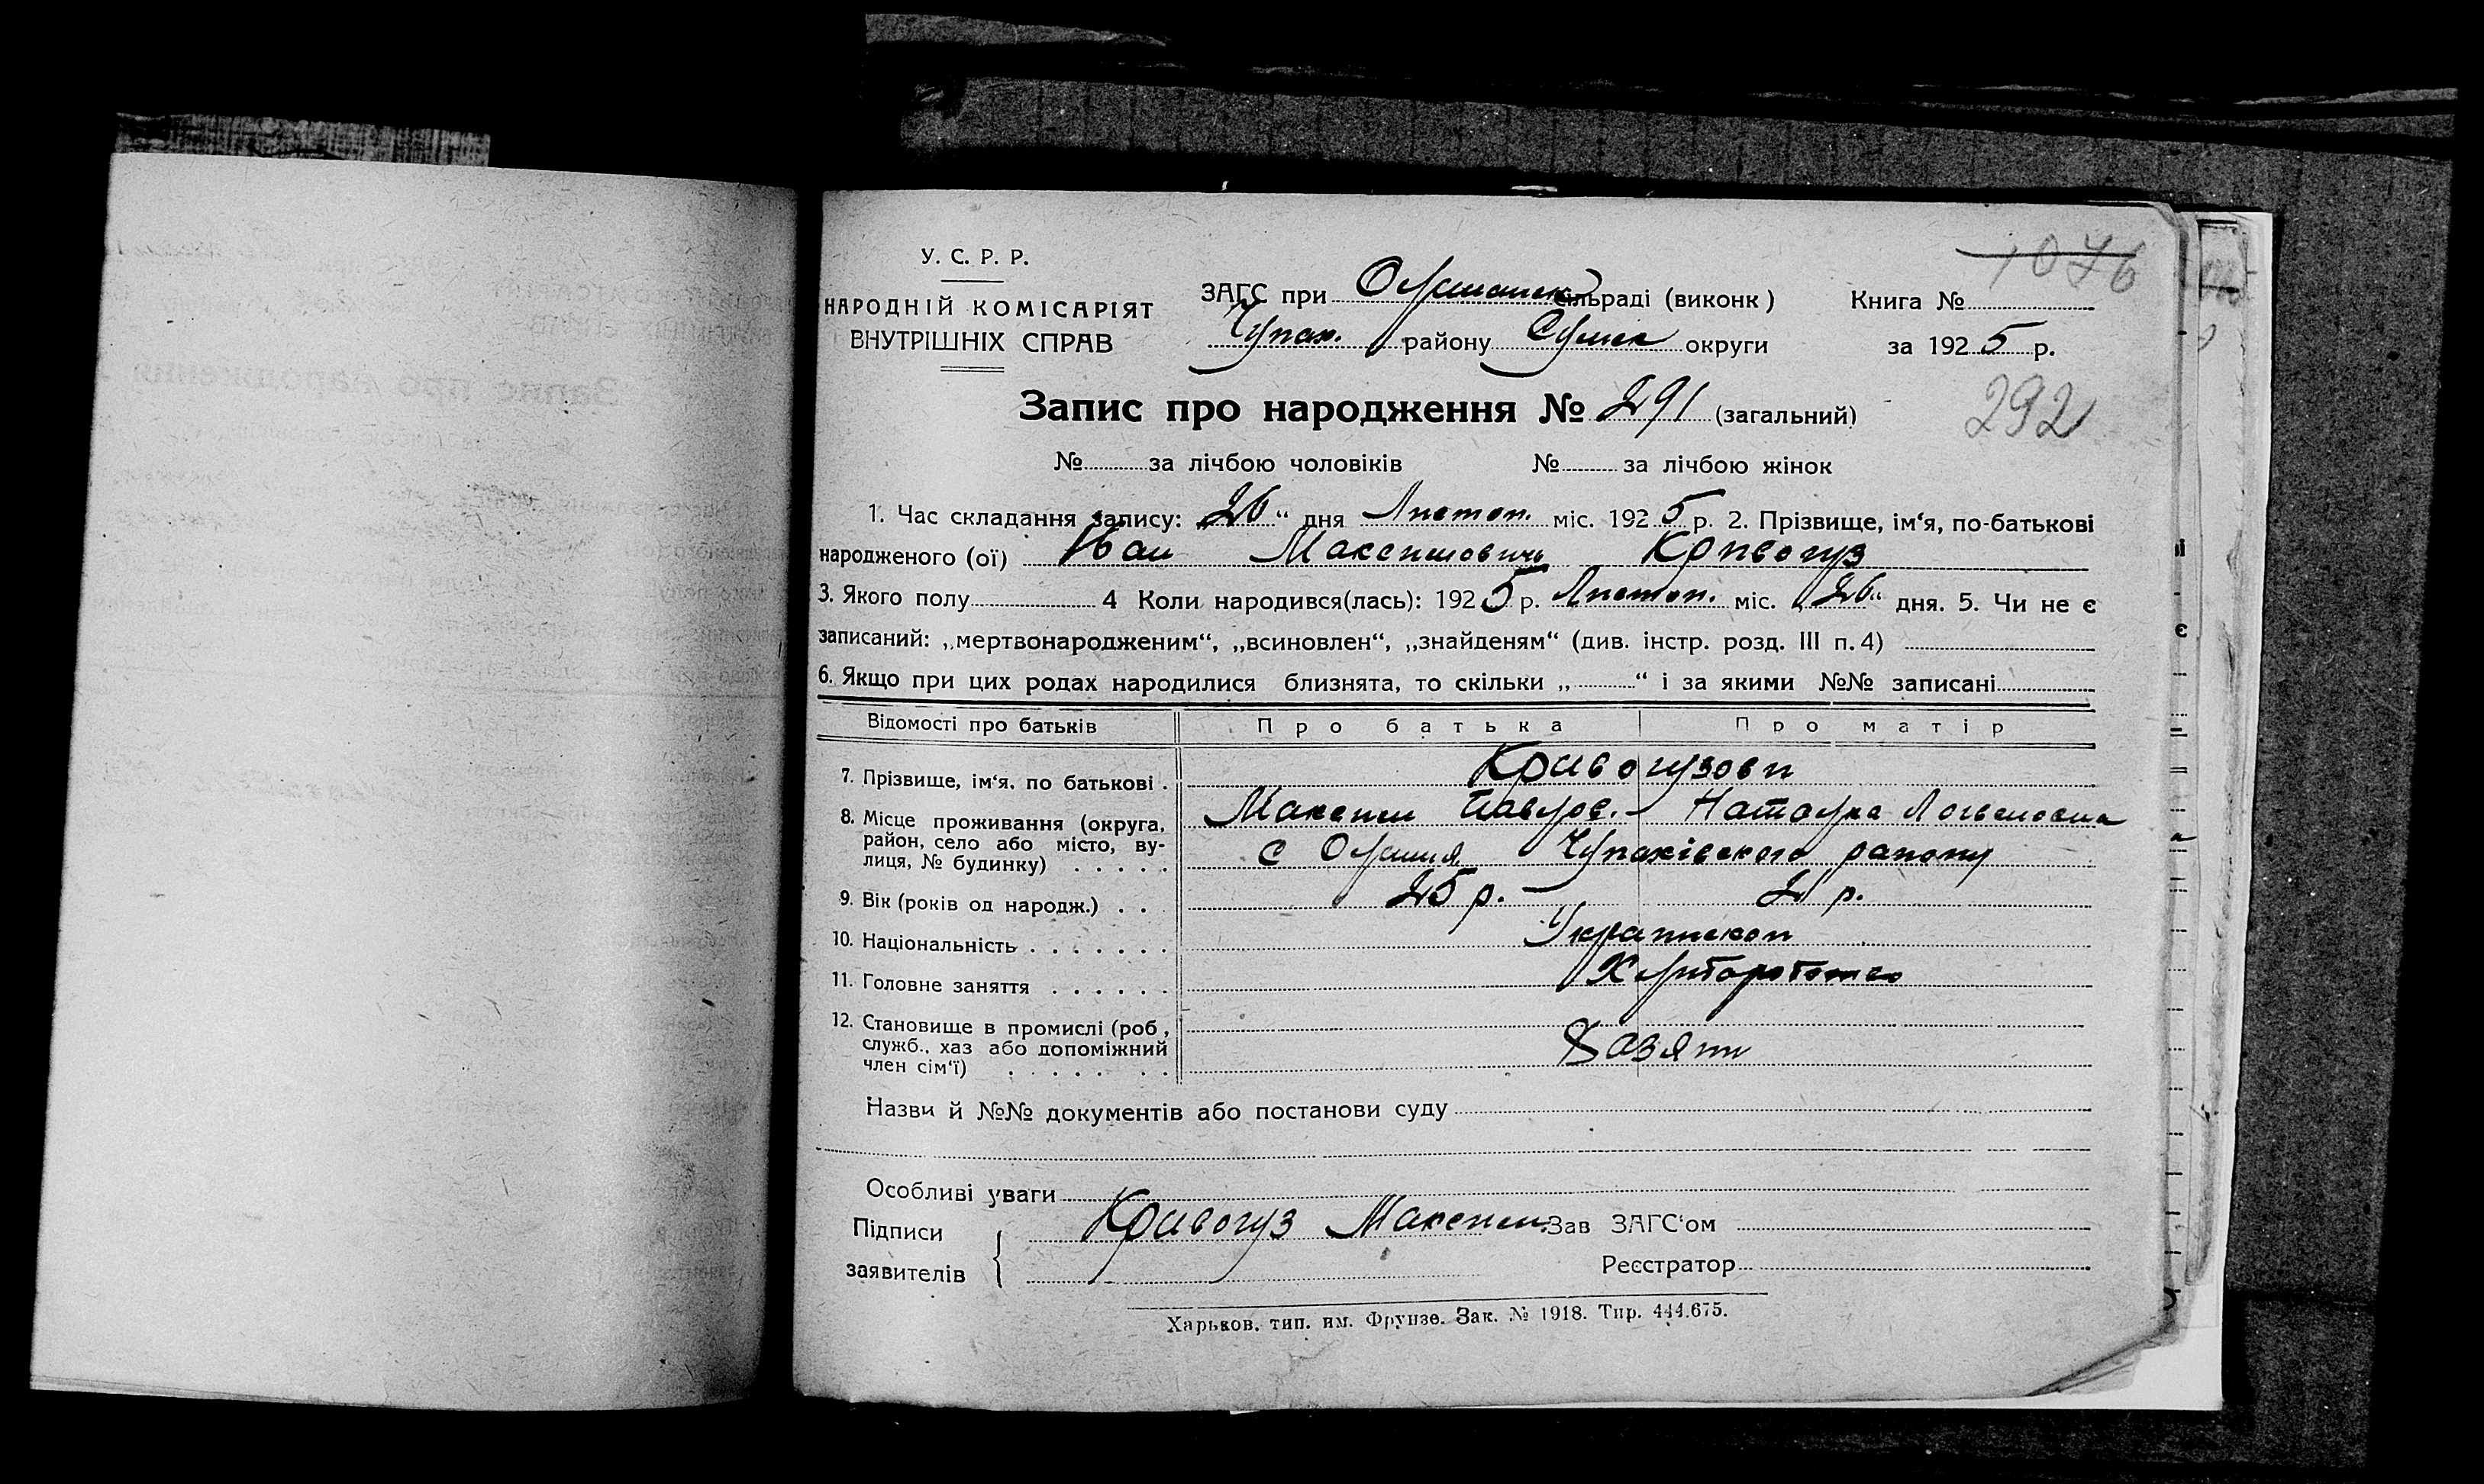 1076
У. С. Р. Р.
НАРОДНІЙ КОМІСАРІЯТ
ВНУТРІШНІХ СПРАВ
ЗАГС при Олешанськ сільраді (виконк)
Чупах. району Сумськ округи
Книга №
за 1925 р.
Запис про народження № 291 (загальний)
292
№ за лічбою чоловіків № за лічбою жінок
1. Час складання запису: „26“ дня Листоп. міс. 1925 р. 2. Прізвище, ім‘я, по-батькові
народженого (ої) Іван Максимович Кривогуз
3. Якого полу 4 Коли народився(лась): 1925 р. Листоп. міс. „26“ дня. 5. Чи не є
записаний: „мертвонародженим“, „всиновлен“, „знайденям“ (див. інстр. розд. III п. 4)
6. Якщо при цих родах народилися близнята, то скільки „ “ і за якими №№ записані
Відомості про батьків Про батька Про матір
7. Прізвище, ім‘я, по батькові . Кривогузови
Максим Павлов. – Наталка Логвиновна
8. Місце проживання (округа,
район, село або місто, ву-
лиця, № будинку) . . . . .
с Олешня Чупахівского району
9. Вік (років од народж.) . . 25 р. — 21 р.
10. Національність . . . . . . . Українской
11. Головне заняття . . . . . . Хліборобство
12. Становище в промислі (роб,
служб., хаз або допоміжний
член сім‘ї) . . . . . . .
Хазяіи
Назви й №№ документів або постанови суду
Особливі уваги
Підписи
заявителів
Кривогуз Максим
Зав ЗАГС‘ом
Реєстратор
Харьков, тип. им. Фрунзе. Зак. № 1918. Тир. 444.675.